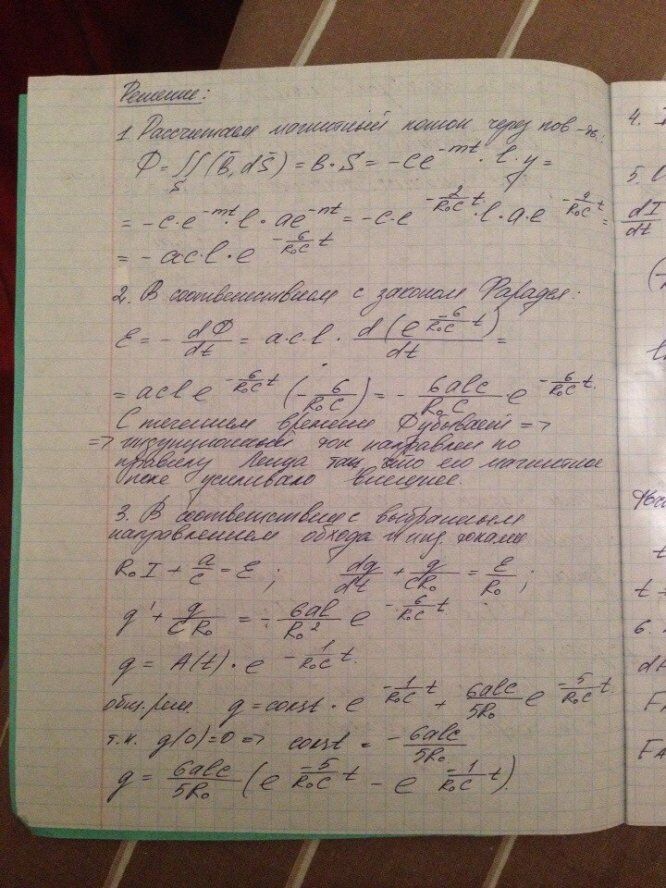 Решение:
1. Рассчитаем магнитный поток через пов-ть:
Φ = ∬_S (B̄, dS̄) = B · S = -ce^{-mt} · l · y =
= -c·e^{-mt} · l · ae^{-nt} = -c·e^{-\frac{2}{R₀C}t} · l · a · e^{-\frac{4}{R₀C}t} =
= -ac·l·e^{-\frac{6}{R₀C}t}
2. В соответствием с законом Фарадея:
ε = -\frac{dΦ}{dt} = a·c·l · \frac{d(e^{\frac{-6}{R₀C}t})}{dt} =
= acl e^{-\frac{6}{R₀C}t} (-\frac{6}{R₀C}) = -\frac{6alc}{R₀C} e^{-\frac{6}{R₀C}t}.
С течением времени Φ убывает =>
=> индукционный ток направлен по
правилу Ленца так, что его магнитное
поле усиливало внешнее.
3. В соответствие с выбранным
направлением обхода и инд. токами
R₀I + \frac{q}{c} = ε ; \frac{dq}{dt} + \frac{q}{CR₀} = \frac{ε}{R₀} ;
q' + \frac{q}{CR₀} = -\frac{6al}{R₀²} e^{-\frac{6}{R₀C}t}
q = A(t) · e^{-\frac{1}{R₀C}t}.
общ. реш. q = const · e^{-\frac{1}{R₀C}t} + \frac{6alc}{5R₀} e^{-\frac{5}{R₀C}t}
т.к. q(0)=0 => const = -\frac{6alc}{5R₀}
q = \frac{6alc}{5R₀} (e^{\frac{-5}{R₀C}t} - e^{\frac{-1}{R₀C}t}).
4.
5.
\frac{dI}{dt}
6.